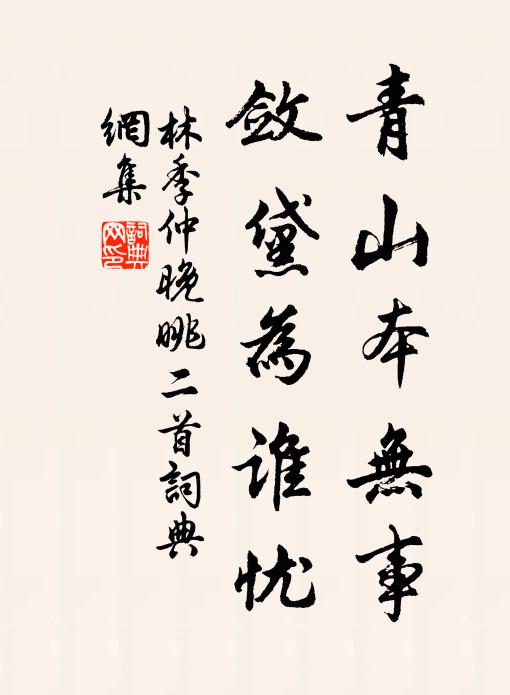 青山本無事
斂黛為誰忧
林季仲晚眺二首詞典
網集
詞典網印